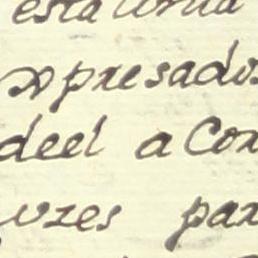 esta
xpresados
deel a Cor
uzes par